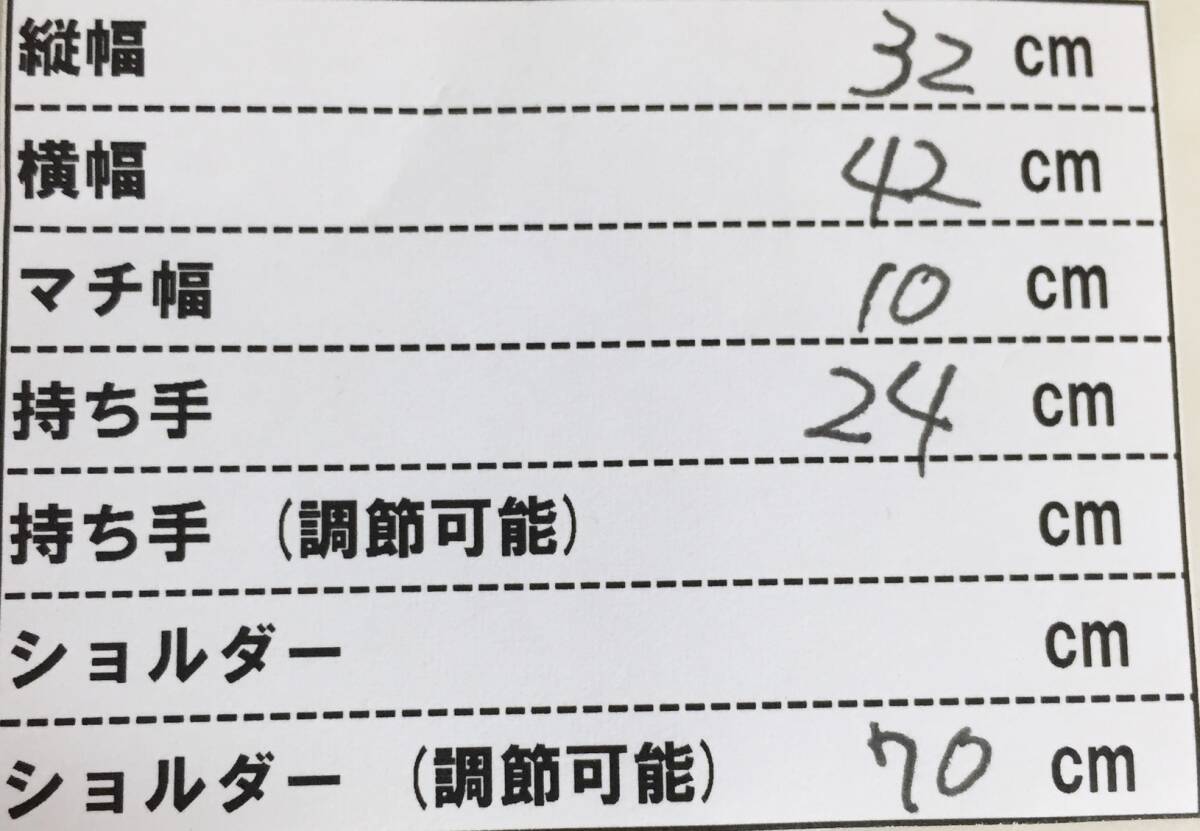 縦幅 32 cm
横幅 42 cm
マチ幅 10 cm
持ち手 24 cm
持ち手 (調節可能) cm
ショルダー cm
ショルダー (調節可能) 70 cm